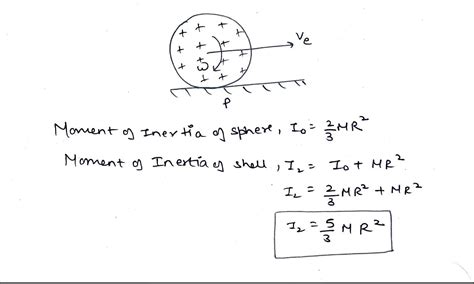 + + + + + + + + + + + + + +
Ve
ω
P
Moment of Inertia of sphere, I₀ = 2/3 MR²
Moment of Inertia of shell, I₂ = I₀ + MR²
I₂ = 2/3 MR² + MR²
I₂ = 5/3 MR²